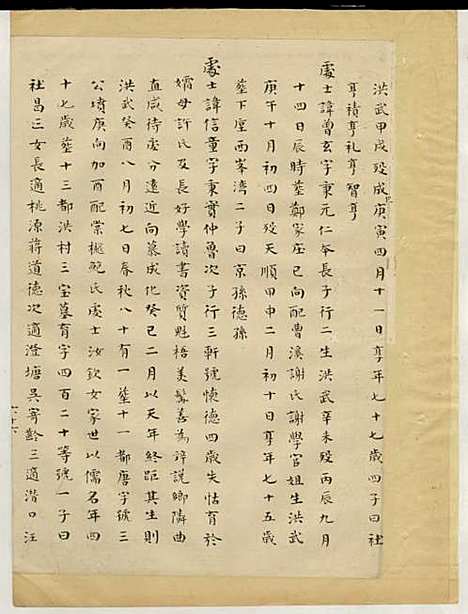 洪武甲戌歿成化庚寅四月十一日享年七十七歲四子曰社
亨積亨礼亨智亨
處士諱曾玄字秉元仁本長子行二生洪武辛未歿丙辰九月
十四日辰時葬鄭家座巳向配曹溪謝氏謝學官姐生洪武
庚午十月初四日歿天順甲申二月初十日享年七十五歲
葬下厘西峯湾二子曰京孫德孫
處士諱信童字秉實仲魯次子行三軒號懷德四歲失怙育於
孀母許氏及長好學讀書資質魁梧美鬚善為辭說鄉隣曲
直咸待處分遠近向慕成化癸巳二月以天年終距其生則
洪武癸酉八月初七日春秋八十有一葬十一都唐字號三
公墳庚向加酉配棠樾鮑氏處士汝欽女家世以儒名年四
十七歲葬十三都洪村三宝墓育字四百二十等號一子曰
社昌三女長適桃源蔣道德次適澄塘吳寄齡三適潛口汪